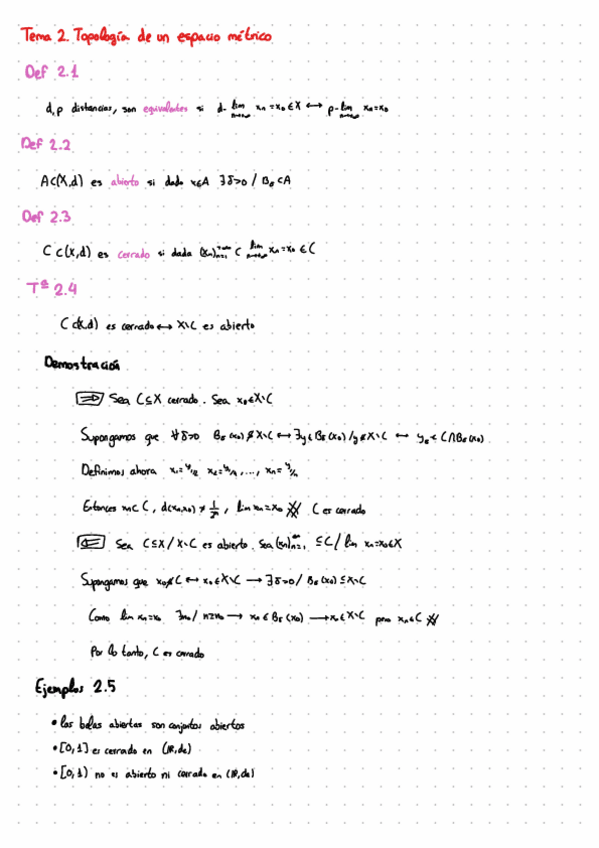 Tema 2. Topología de un espacio métrico
Def 2.1
d, p distancias, son equivalentes si d-lim n→∞ xn = x0 ∈ X ↔ p-lim n→∞ xn = x0
Def 2.2
A⊂(X,d) es abierto si dado x∈A ∃δ>0 / Bδ ⊂ A
Def 2.3
C⊂(X,d) es cerrado si dada (xn)n=1^+∞ ⊂ C lim n→∞ xn = x0 ∈ C
Tª 2.4
C⊂(X,d) es cerrado ↔ X\C es abierto
Demostración
⇒ Sea C⊆X cerrado. Sea x0∈X\C
Supongamos que ∀δ>0 Bδ(x0)⊄X\C ↔ ∃y∈Bδ(x0) / y∉X\C ↔ yδ∈C∩Bδ(x0)
Definimos ahora x1= y1/2 x2= y1/4, ..., xn=
Entonces xn⊂C, d(xn,x0) , lim xn=x0 C es cerrado
⇐ Sea C⊆X / X\C es abierto. Sea (xn)n=1^∞ ⊆C / lim xn=x0∈X
Supongamos que x0∉C ↔ x0∈X\C → ∃δ>0 / Bδ(x0)⊆X\C
Como lim xn=x0 ∃n0 / n≥n0 → xn∈Bδ(x0) → xn∈X\C pero xn∈C
Por lo tanto, C es cerrado
Ejemplos 2.5
• las bolas abiertas son conjuntos abiertos
• [0,1] es cerrado en (ℝ,de)
• [0,1) no es abierto ni cerrado en (ℝ,de)